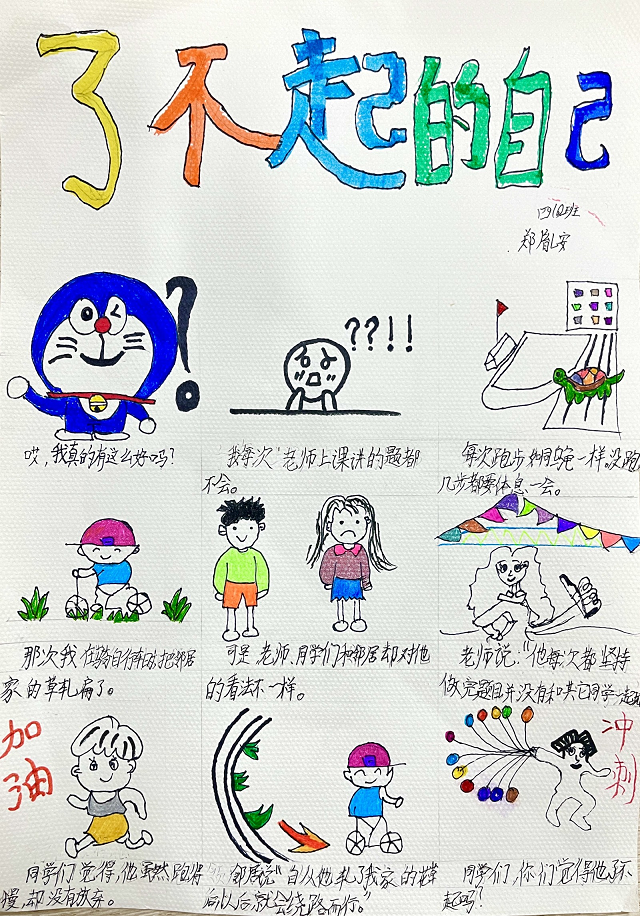 了不起的自己
四(2)班
郑胤安
??!!
哎,我真的有这么好吗?
我每次“老师上课讲的题都
不会。
每次跑步和乌龟一样。没跑
几步都要休息一会。
那次我在骑自行车时把邻居
家的草轧扁了。
可是老师、同学们和邻居却对他
的看法不一样。
老师说:“他每次都坚持
做完题目并没有和其它同学一起
加油
冲刺
同学们觉得,他虽然跑得
慢,却没有放弃。
邻居说“自从他轧了我家的草
以后就会绕路而行。”
同学们,你们觉得他了不
起吗?